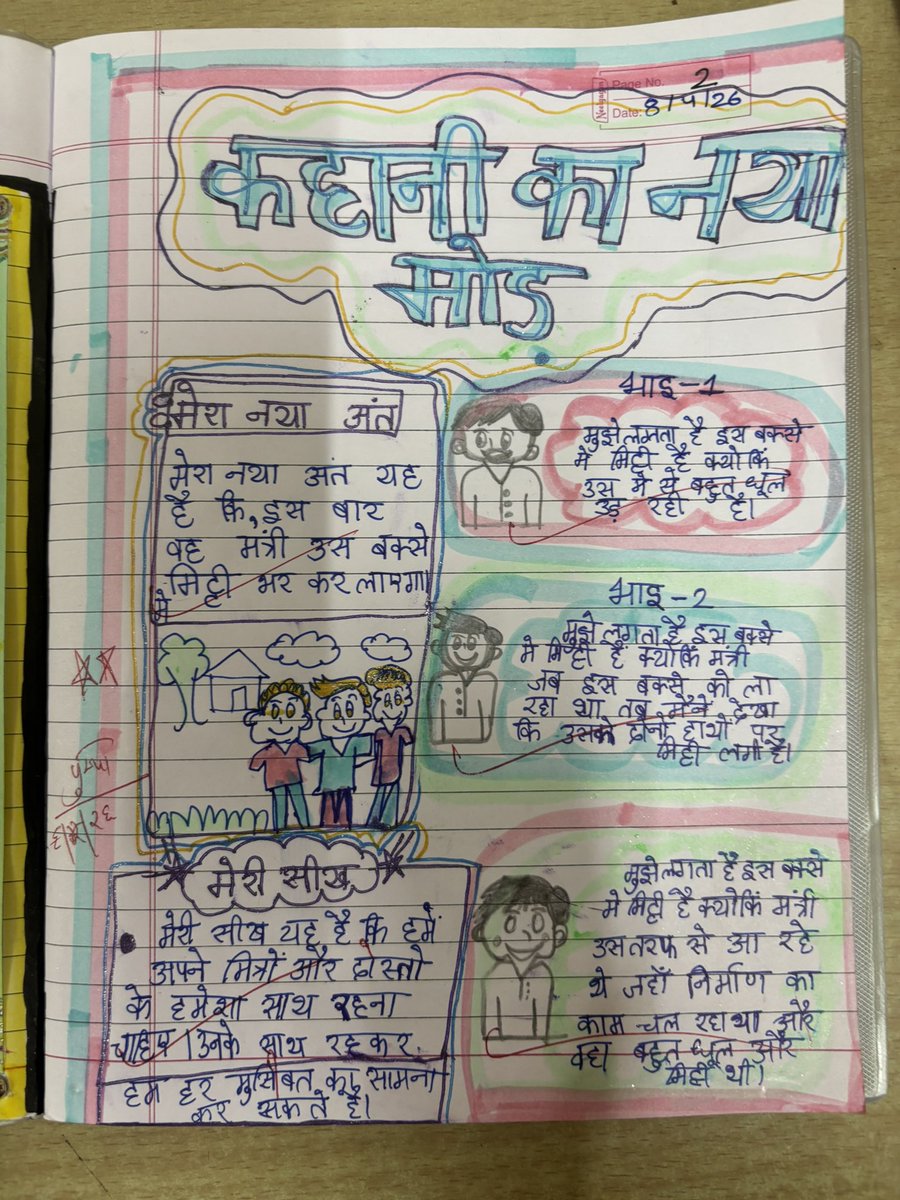 Neelgagan
Page No. 2
Date: 8/4/26
कहानी का नया
मोड
मेरा नया अंत
मेरा नया अंत यह
है कि, इस बार
वह मंत्री उस बक्से
मे मिट्टी भर कर लाएगा
भाइ-1
मुझे लगता है इस बक्से
में मिट्टी है क्योकि
उस मे से बहुत धूल
उड़ रही है।
भाइ-2
मुझे लगता है इस बक्से
मे मिट्टी है क्योकि मंत्री
जब इस बक्से को ला
रहा था तब मैने देखा
कि उसके दोनो हाथो पर
मिट्टी लगी है।
मुझे लगता है इस बक्से
मे मिट्टी है क्योकिं मंत्री
उस तरफ से आ रहे
थे जहाँ निर्माण का
काम चल रहा था और
वहा बहुत धूल और
मिट्टी थी।
मेरी सीख
मेरी सीख यह है कि हमें
अपने मित्रों और दोस्तो
के हमेशा साथ रहना
चाहिए। उनके साथ रह कर
हम हर मुसिबत का सामना
कर सकते है।